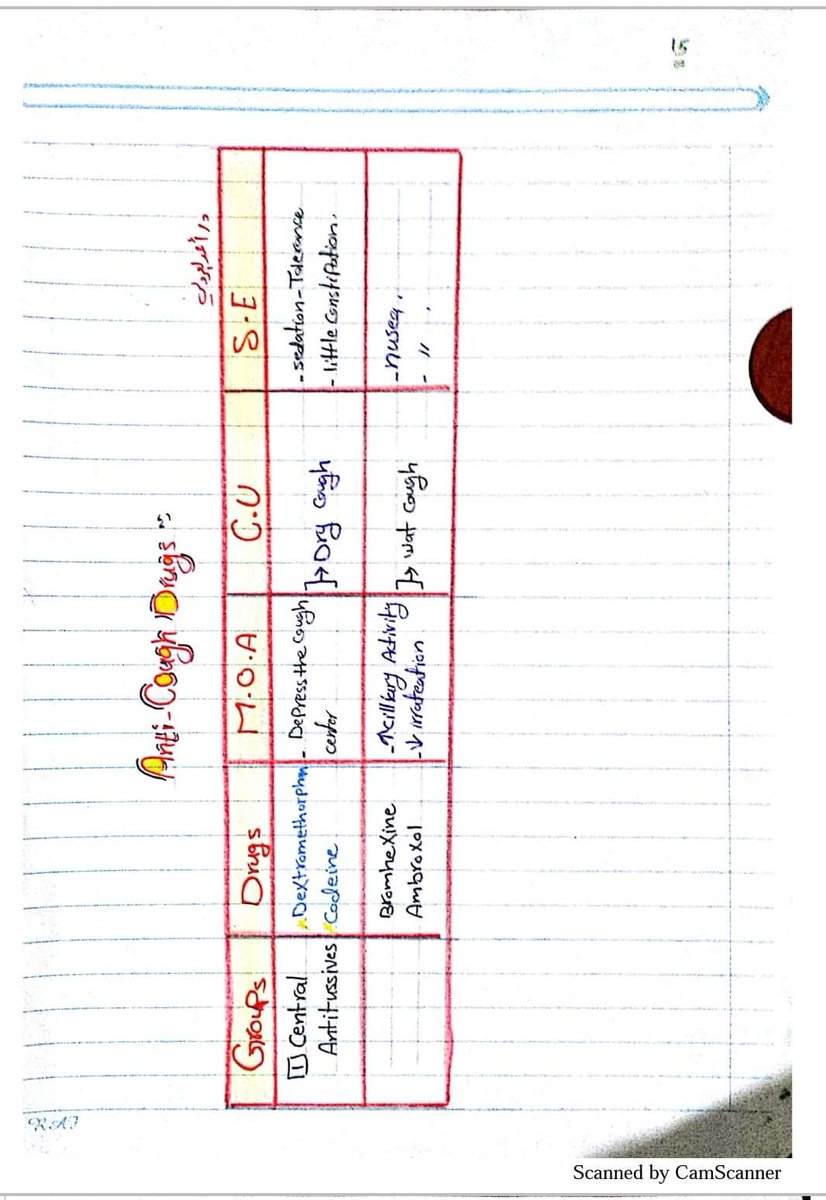 15
Anti-Cough Drugs
Groups Drugs M.O.A C.U S.E
1 Central
Antitussives
Dextromethorphan
Codeine
- Depress the Cough
center
→ Dry Cough
- sedation - Tolerance
- little constipation.
Bromhexine
Ambroxol
- ↑ Cilliary Activity
- ↓
→ wat Cough
- nusea.
- " .
RAJ
Scanned by CamScanner